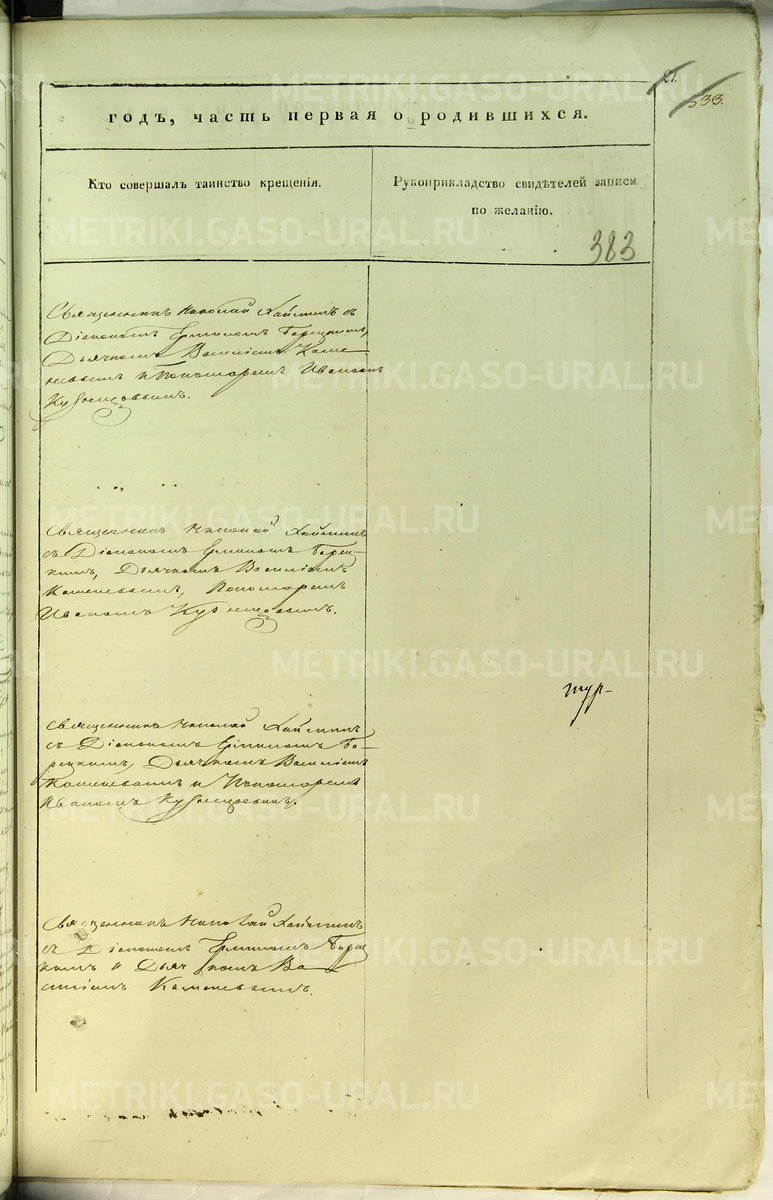 21.
533.
годъ, часть первая о родившихся.
Кто совершалъ таинство крещенія.
Рукоприкладство свидѣтелей записи
по желанію.
383
Священникъ Николай Хайминъ съ
Діакономъ Ермиломъ Борецкимъ,
Дьячкомъ Василіемъ Каме-
невымъ и Пономаремъ Иваномъ
Кузнецовымъ.
Священникъ Николай Хайминъ
съ Діакономъ Ермиломъ Борец-
кимъ, Дьячкомъ Василіемъ
Каменевымъ, Пономаремъ
Иваномъ Кузнецовымъ.
Священникъ Николай Хайминъ
съ Діакономъ Ермиломъ Бо-
рецкимъ, Дьячкомъ Василіемъ
Каменевымъ и Пономаремъ
Иваномъ Кузнецовымъ.
тур-
Священникъ Николай Хайминъ
съ Діакономъ Ермиломъ Борец
кимъ и Дьячкомъ Ва
силіемъ Каменевымъ.
METRIKI.GASO-URAL.RU